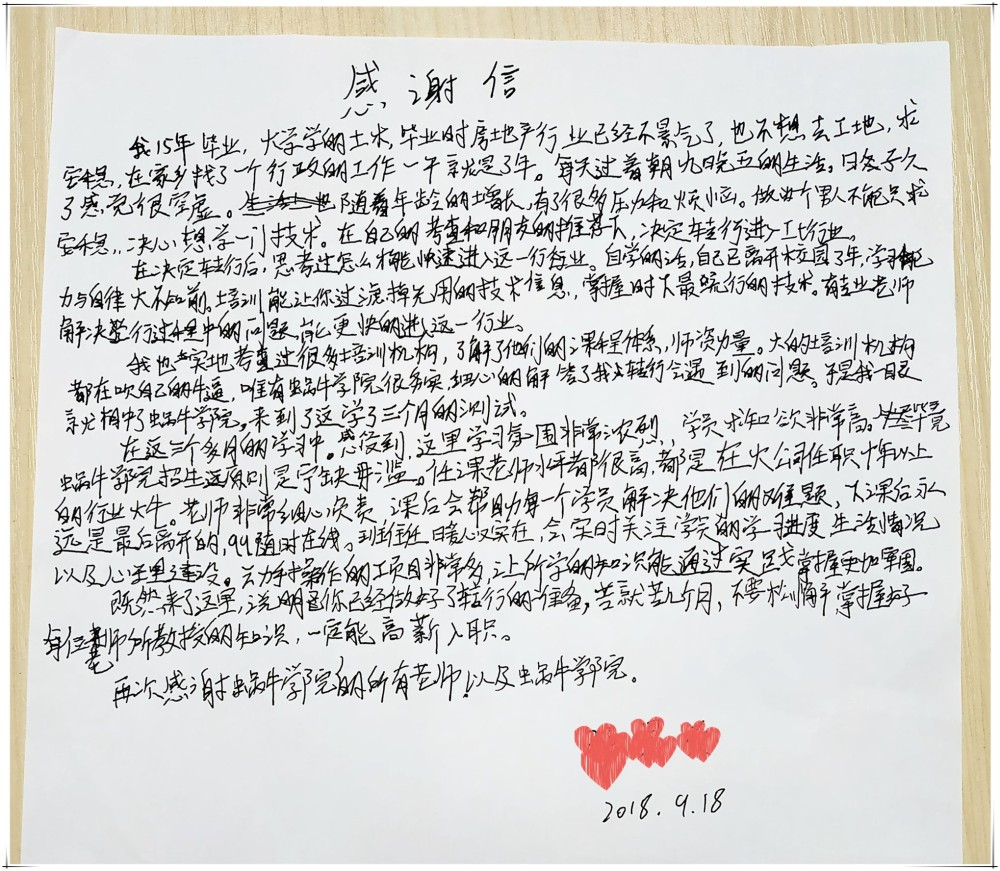 感谢信
我15年毕业，大学学的土木，毕业时房地产行业已经不景气了，也不想去工地，求
安稳，在家乡找了一个行政的工作一干就是3年。每天过着朝九晚五的生活。日子久
了感觉很空虚。随着年龄的增长，有了很多压力和烦恼。做为个男人不能只求
安稳，决心想学一门技术。在自己的考查和朋友的推荐下，决定转行进入IT行业。
在决定转行后，思考过怎么才能快速进入这一行业。自学的话，自己已离开校园3年，学习能
力与自律大不如前。培训能让你过滤掉无用的技术信息，掌握时下最流行的技术。有专业老师
解决学行过程中的问题，能更快的进入这一行业。
我也实地考查过很多培训机构，了解了他们的课程体系，师资力量。大的培训机构
都在吹自己的牛逼，唯有蜗牛学院很务实，细心的解答了我转行会遇到的问题。于是我一目
就相中了蜗牛学院，来到了这学了三个月的测试。
在这三个多月的学习中。感受到，这里学习氛围非常浓烈，学员求知欲非常高。毕竟
蜗牛学院招生原则是宁缺毋滥。任课老师水平都很高，都是在大公司任职十年以上
的行业大牛。老师非常细心负责，课后会帮助每一个学员解决他们的难题，下课后永
远是最后离开的，QQ随时在线。班主任暖心又实在，会实时关注学员的学习进度生活情况
以及心里建设。动手操作的项目非常多，让所学的知识能通过实践掌握更加牢固。
既然来了这里，说明你已经做好了转行的准备，苦就苦几个月，不要松懈掌握好
每位老师所教授的知识，一定能高薪入职。
再次感谢蜗牛学院的所有老师！以及蜗牛学院。
2018.9.18